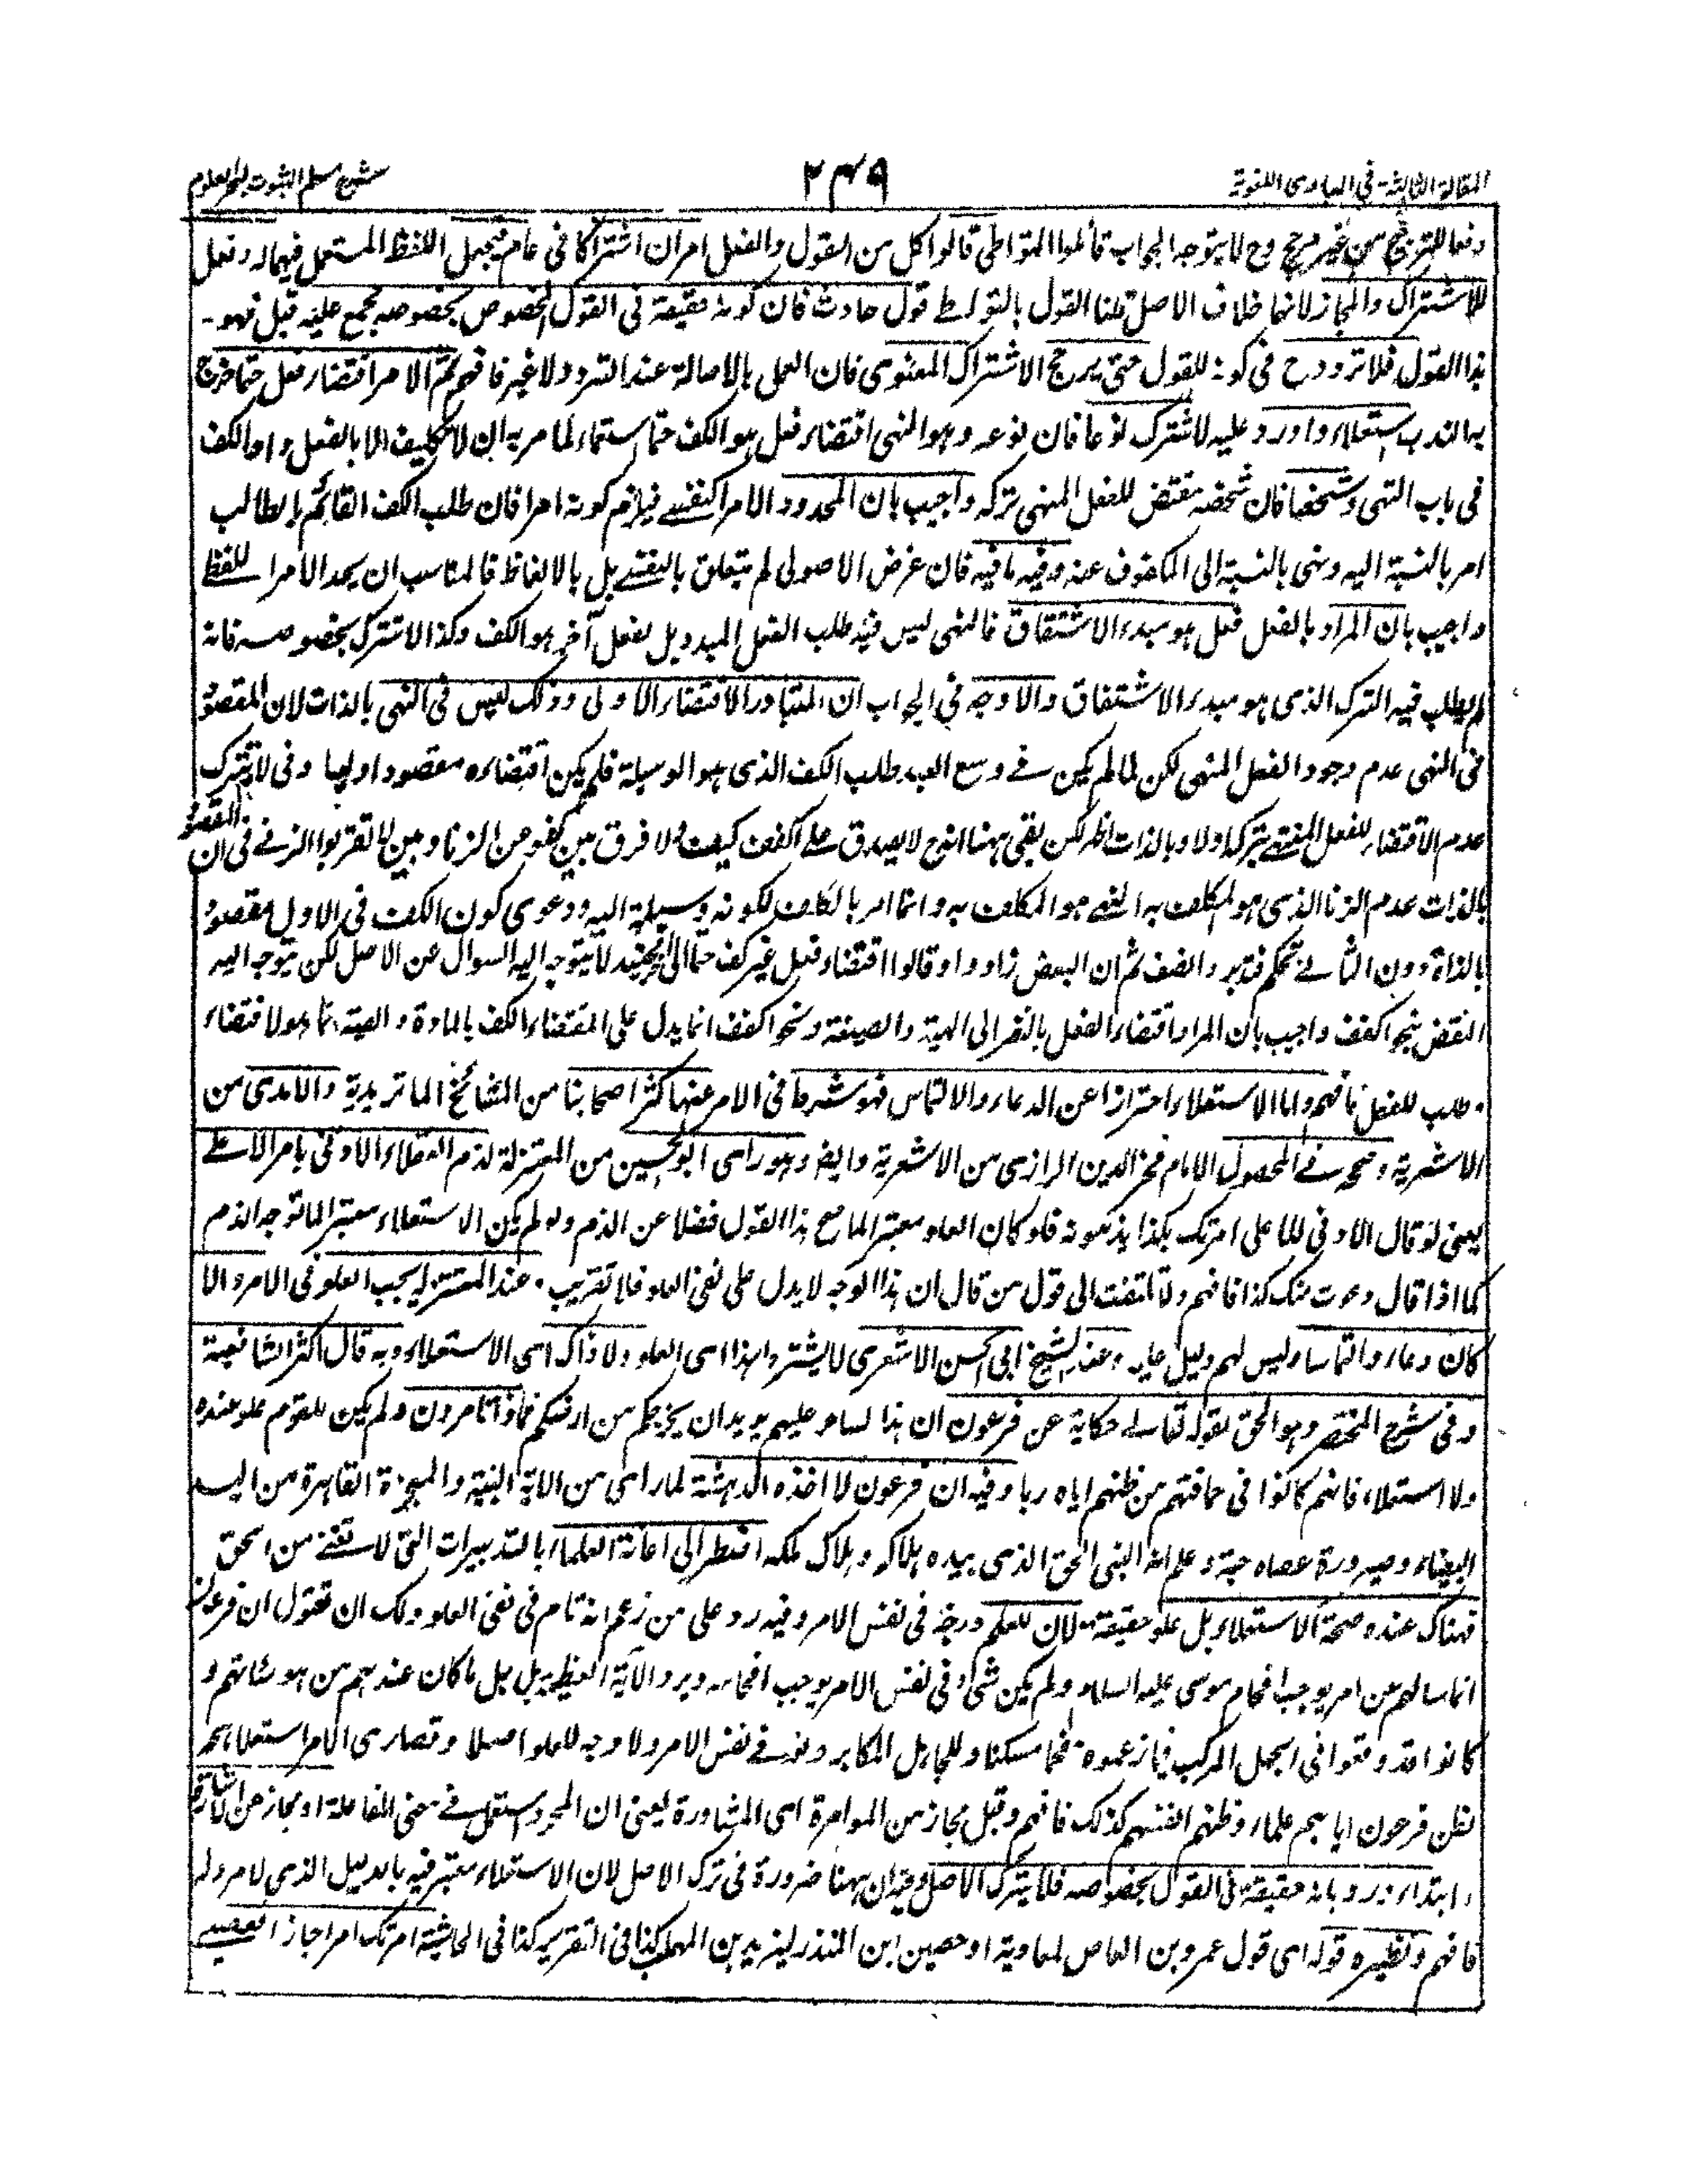 المقالة الثالثة - في المبادى اللغوية
٢٤٩
شرح مسلم الثبوت لبحر العلوم
دفعا للترجيح من غير مرجح وح لا يتوجه الجواب قائلوا التواطئ قالوا كل من القول والفعل امران اشتركا في عام فيجعل اللفظ المستعمل فيهما له دفعا
للاشتراك والمجاز لانهما خلاف الاصل قلنا القول بالتواطئ قول حادث فان كونه حقيقة في القول المخصوص بخصوصه مجمع عليه قبل فهو
هذا القول فلا تردد ح في كونه للقول حتى يرجح الاشتراك المعنوي فان العمل بالاصالة عند التردد لا غير فافهم ثم الامر اقتضاء فعل حتما خرج
به الندب استعلاء واورد عليه لا تترك نوعا فان نوعه وهو النهي اقتضاء فعل هو الكف حتما استعلاء لما مر به ان لا تكليف الا بالفعل وهو الكف
في باب النهي وشخصا فان شخصه مقتض للفعل المنهي تركه واجيب بان المحدود الامر النفسي فيلزم كونه امرا فان طلب الكف القائم بالطالب
امر بالنسبة اليه ونهي بالنسبة الى المكفوف عنه وفيه ما فيه فان غرض الاصولي لم يتعلق بالنفسي بل بالالفاظ فالمناسب ان يحد الامر اللفظي
واجيب بان المراد بالفعل فعل هو مبدء الاشتقاق فالنهي ليس فيه طلب الفعل المبدء بل لفعل آخر هو الكف وكذا لا تترك بخصوصه فانه
لم يطلب فيه الترك الذي هو مبدء الاشتقاق والاوجه في الجواب ان المتبادر الاقتضاء الاولي وذلك ليس في النهي بالذات لان المقصود
في النهي عدم وجود الفعل المنهي لكن لما لم يكن في وسع العبد طلب الكف الذي هو الوسيلة فلم يكن اقتضاءه مقصودا اوليا وفي لا تترك
عدم الاقتضاء للفعل المقتضى بتركه اولا وبالذات اظهر لكن بقي ههنا انه ح لا يصدق على اكفف كيف ولا فرق بين كفوا عن الزنا وبين لا تقربوا الزنى في ان المقصود
بالذات عدم الزنا الذي هو المكلف به النفي هو المكلف به وانما امر بالكف لكونه وسيلة اليه ودعوى كون الكف في الاول مقصود
بالذات دون الثاني تحكم فتدبر وانصف ثم ان البعض زادوا وقالوا اقتضاء فعل غير كف حتما الخ فحينئذ لا يتوجه اليه السوال عن الاصل لكن يتوجه اليه
النقض بنحو اكفف واجيب بان المراد اقتضاء الفعل بالنظر الى الهيئة والصيغة ونحو اكفف انما يدل على اقتضاء الكف بالمادة والهيئة انما هو لاقتضاء
وطلب للفعل فافهم واما الاستعلاء احترازا عن الدعاء والالتماس فهو شرط في الامر عندها كثر اصحابنا من المشائخ الماتريدية والامدي من
الاشعرية وصححه في المحصول الامام فخر الدين الرازي من الاشعرية وايضا وهو راى ابو الحسين من المعتزلة لذم العقلاء الادنى بامر الاعلى
يعني لو قال الادنى للاعلى امرتك بكذا يذمونه فلو كان العلو معتبرا لما صح هذا القول فضلا عن الذم ولو لم يكن الاستعلاء معتبرا لما توجه الذم
كما اذا قال دعوت منك كذا فافهم ولا تلتفت الى قول من قال ان هذا الوجه لا يدل على نفي العلو فلا تقريب وعند المعتزلة يجب العلو في الامر والا
كان دعاء والتماسا وليس لهم دليل عليه وعند الشيخ ابي الحسن الاشعري لا يشترط هذا اى العلو ولا ذاك اى الاستعلاء وبه قال اكثر الشافعية
وفي شرح المختصر وهو الحق لقوله تعالى حكاية عن فرعون ان هذا لساحر عليم يريد ان يخرجكم من ارضكم فماذا تامرون ولم يكن للقوم علو عنده
ولا استعلاء فانهم كانوا في حماقتهم من ظنهم اياه ربا وفيه ان فرعون لما اخذه الدهشة لما راى من الآية البينة والمعجزة القاهرة من اليد
البيضاء وصيرورة عصاه حية وعلم انه النبي الحق الذي بيده هلاكه وهلاك ملكه اضطر الى اعانة العلماء بالتدبيرات التي لا تغني من الحق
فهناك عنده صحة الاستعلاء بل علو حقيقة لان للعلم درجة في نفس الامر وفيه رد على من زعم انه تام في نفي العلو ولك ان تقول ان فرعون
انما سالهم عن امر يوجب افحام موسى عليه السلام ولم يكن شئ في نفس الامر يوجب افحامه ويرد الآية العظيمة بل ما كان عندهم من هوساتهم و
كانوا قد وقعوا في الجهل المركب فما زعموه مفحما مسكتا وللجاهل المكابر دونه في نفس الامر ولا وجه للعلو اصلا وقصارى الامر استعلاءهم
بظن فرعون اياهم علماء وظنهم انفسهم كذلك فافهم وقيل مجاز من الموامرة اى المشاورة يعني ان المجرد استعمل في معنى المفاعلة او مجاز عن الاشارة
ابتداء ورد بانه حقيقة في القول بخصوصه فلا يترك الاصل وحيث ان ههنا ضرورة في ترك الاصل لان الاستعلاء معتبر فيه بالدليل الذي لا مرد له
فافهم ونظيره قوله اى قول عمرو بن العاص لمعاوية او حصين ابن المنذر ليزيد بن المهلب كذا في التقرير كذا في الحاشية امرتك امرا جازما فعصيتني